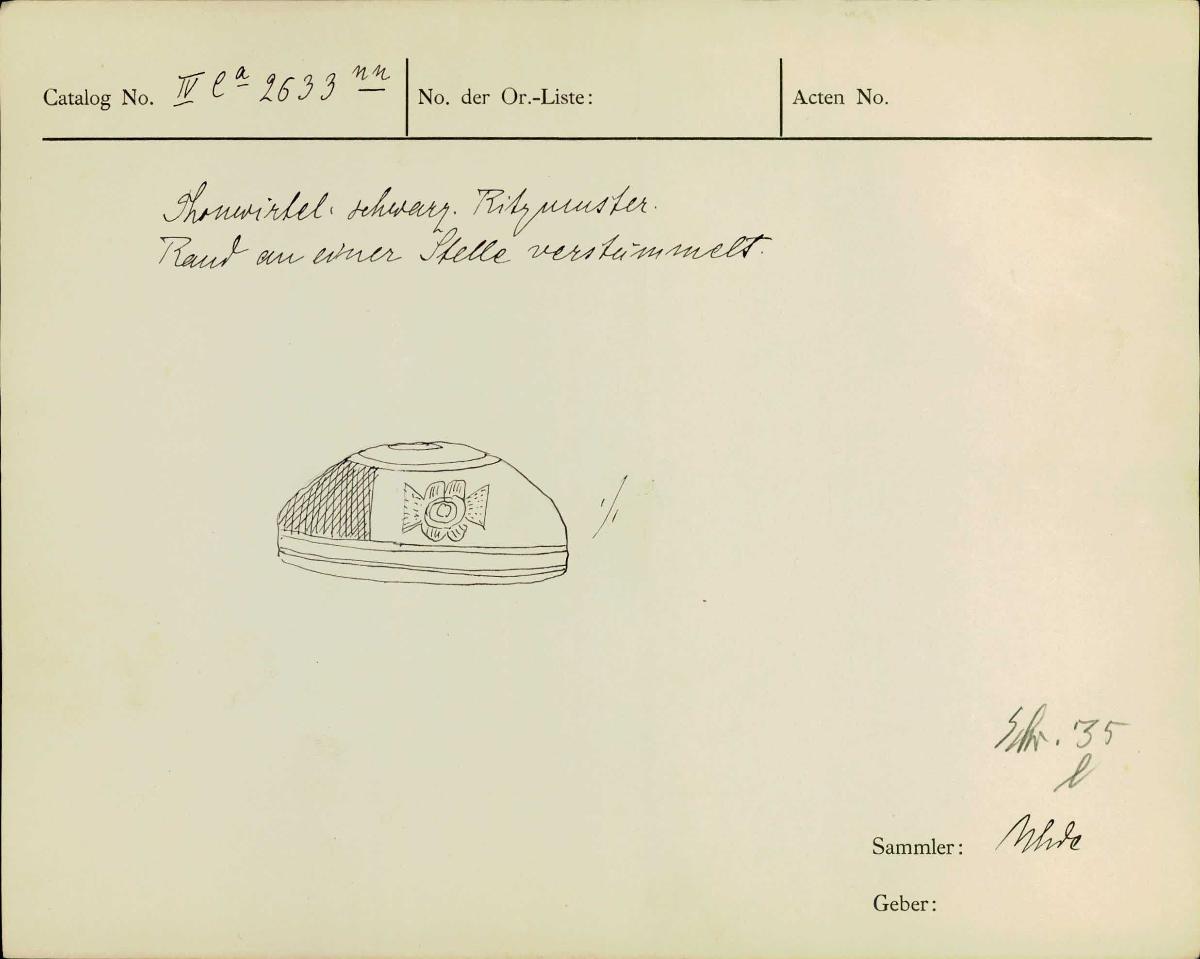 Catalog No. IV Ca 2633 nn No. der Or.-Liste: Acten No.
Thonwirtel. schwarz. Ritzmuster.
Rand an einer Stelle verstümmelt.
1/1
Schr. 35
l
Sammler: Uhde
Geber: